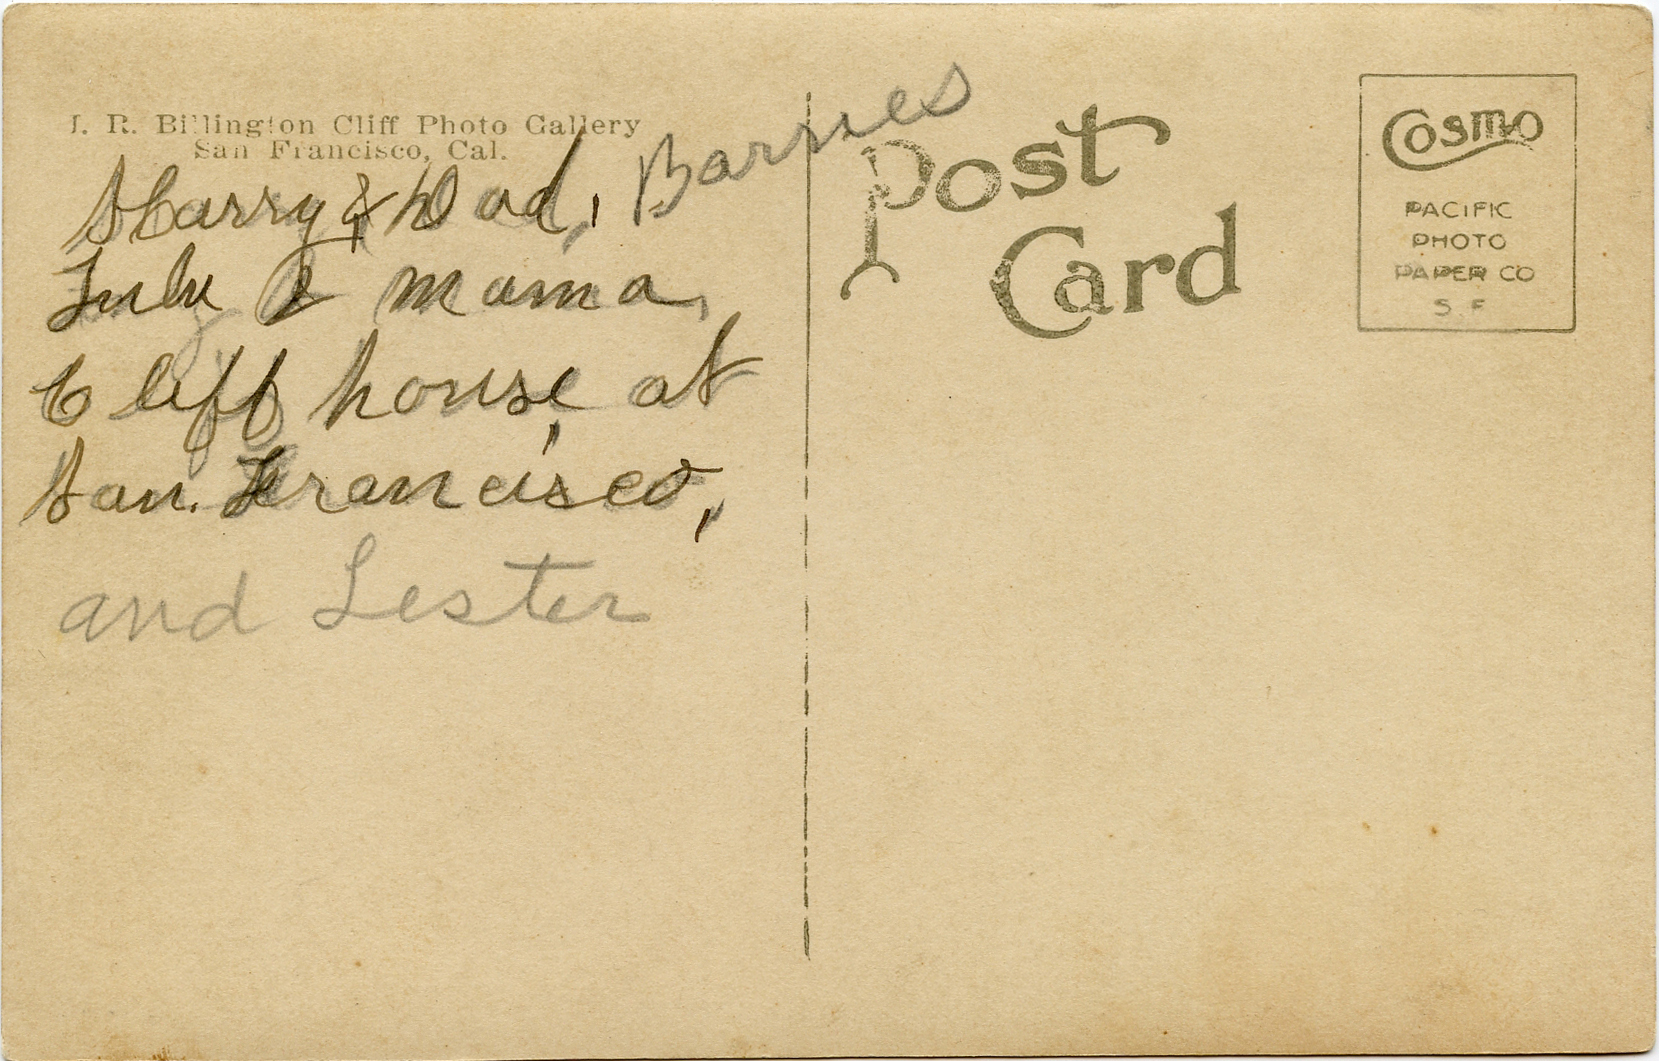 J. R. Billington Cliff Photo Gallery
San Francisco, Cal.
Harry & Dad, Barnes
& mama,
Cliff house, at
San. Francisco,
and Lester
Post
Card
COSMO
PACIFIC
PHOTO
PAPER CO
S. F